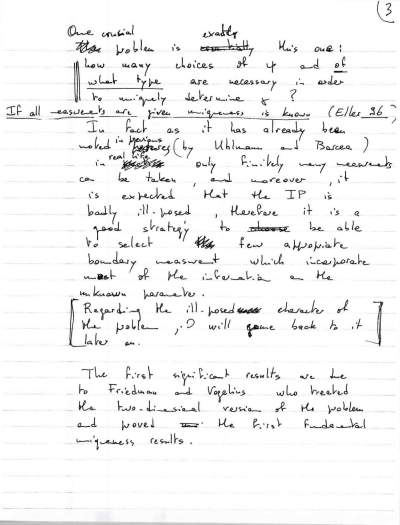 3
One crucial exactly
problem is this one:
how many choices of ψ and of
what type are necessary in order
to uniquely determine ?
If all measurements are given uniqueness is known (Eller 96)
In fact as it has already been
noted in previous (by Uhlmann and Barcea)
in real life only finitely many measurements
can be taken, and moreover, it
is expected that the IP is
badly ill-posed, therefore it is a
good strategy to be able
to select few appropriate
boundary measurement which incorporate
most of the information on the
unknown parameter.
[Regarding the ill-posed character of
the problem, I will come back to it
later on.]
The first significant results are due
to Friedman and Vogelius who treated
the two-dimensional version of the problem
and proved the first fundamental
uniqueness results.